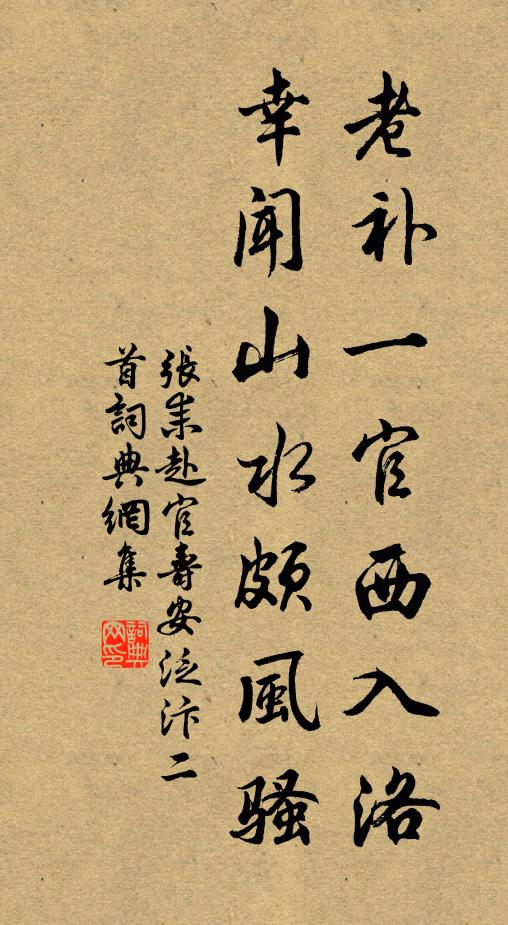 老补一官西入洛
幸聞山水頗風騷
張耒赴官壽安泛汴二
首詞典網集
詞典
网印